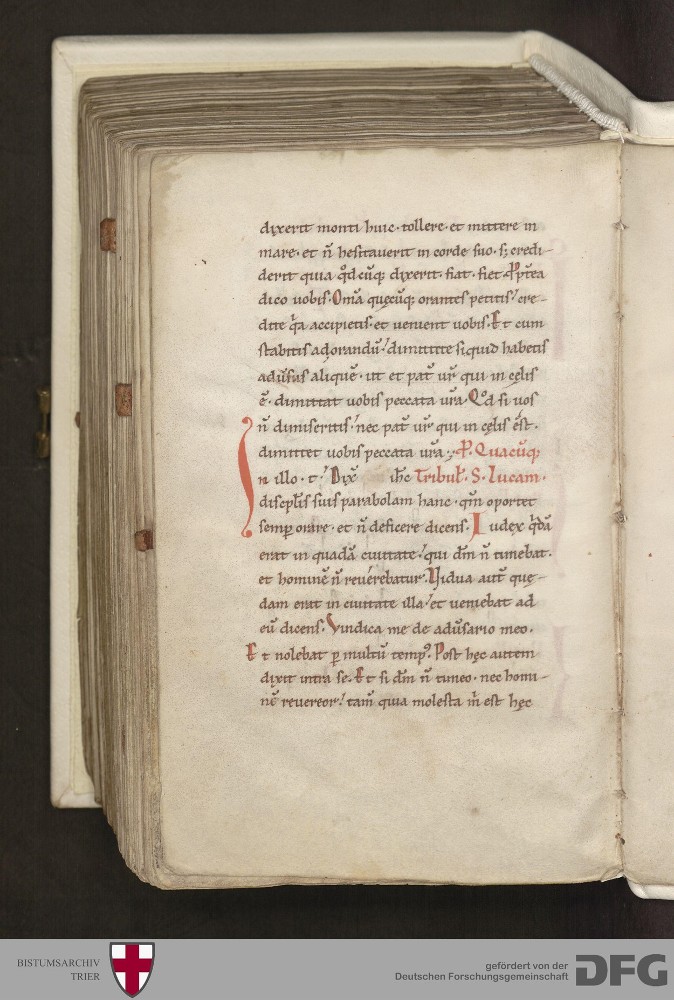 dixerit monti huic· tollere· et mittere in
mare· et n̄ hesitauerit in corde suo· s; credi-
derit quia qdcūq; dixerit· fiat· fiet· ꝓpt̄ea
dico uobis· Om̄a quęcūq; orantes petitis· cre-
dite q̄a accipietis· et uenient uobis· Et cum
stabitis adorandū· dimittite siquid habetis
adūsus aliquē· ut et pat̄ ur̄ qui in cęlis
ē· dimittat uobis peccata ur̄a· Qd si uos
n̄ dimiseritis· nec pat̄ ur̄ qui in cęlis est·
dimittet uobis peccata ur̄a· Quacūq;
In illo· t· Dix̄ ih̄c Tribul̄· S· Lucam·
discipl̄is suis parabolam hanc· qm̄ oportet
semp orare· et n̄ deficere dicens· Iudex q̇dā
erat in quadā ciuitate· qui dm̄ n̄ timebat·
et hominē n̄ reuerebatur· Uidua aut̄ quę-
dam erat in ciuitate illa· et ueniebat ad
eū dicens· Vindica me de adūsario meo·
Et nolebat ꝑ multū temp⁹· Post hęc autem
dixit intra se· Et si dm̄ n̄ timeo· nec homi-
nē reuereor· tam̄ quia molesta m̄ est hęc
BISTUMSARCHIV
TRIER
gefördert von der
Deutschen Forschungsgemeinschaft
DFG